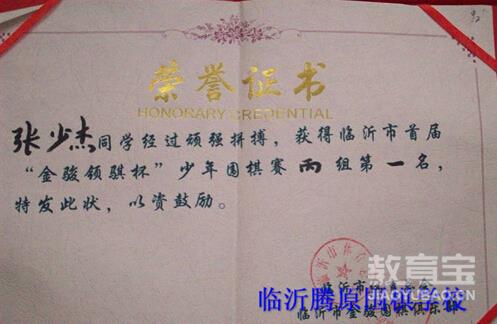 92
荣誉证书
HONORARY CREDENTIAL
张少杰同学经过顽强拼搏，获得临沂市首届
“金骏领骐杯”少年围棋赛丙组第一名，
特发此状，以资鼓励。
临沂市
临沂市金骏围棋俱乐部
临沂腾原围棋学校
教育宝
JIAOYUBAO.CN